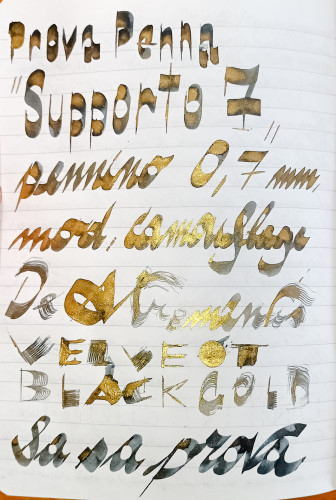 Prova Penna
"Supporto 7"
pennino 0,7 mm,
mod, camouflage
De Atramentis
VELVET
BLACK GOLD
Sa sa prova